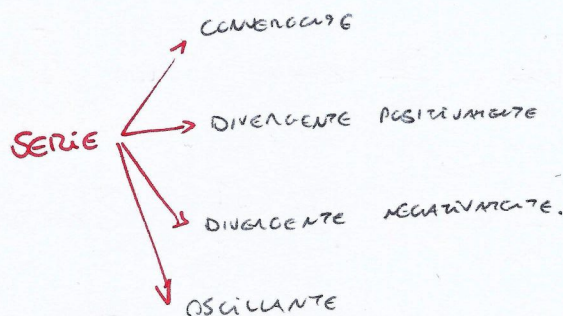 CONVERGENTE
DIVERGENTE POSITIVAMENTE
SERIE
DIVERGENTE NEGATIVAMENTE.
OSCILLANTE